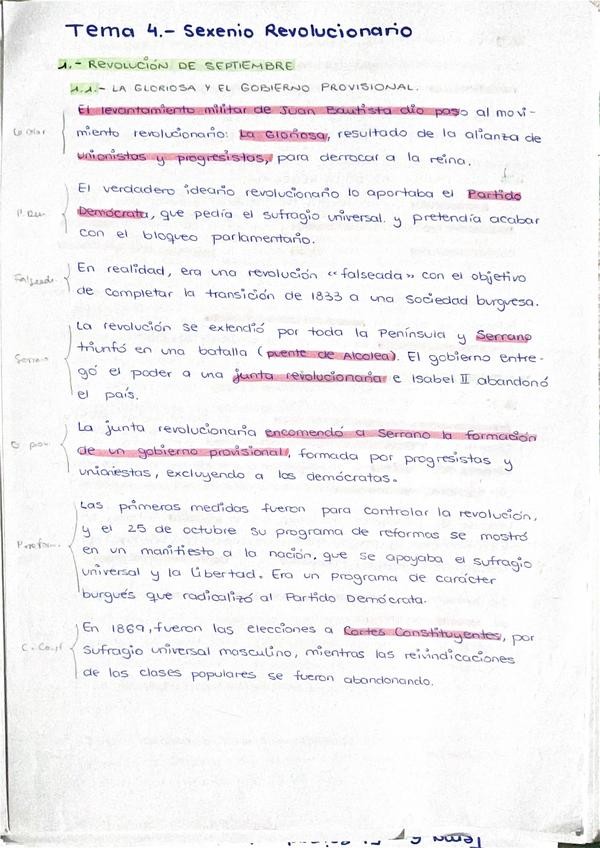 Tema 4.- Sexenio Revolucionario
1.- REVOLUCIÓN DE SEPTIEMBRE
1.1.- LA GLORIOSA Y EL GOBIERNO PROVISIONAL.
El levantamiento militar de Juan Bautista dio paso al movi-
miento revolucionario: La Gloriosa, resultado de la alianza de
unionistas y progresistas, para derrocar a la reina.
El verdadero ideario revolucionario lo aportaba el Partido
Demócrata, que pedía el sufragio universal y pretendía acabar
con el bloqueo parlamentario.
En realidad, era una revolución «falseada» con el objetivo
de completar la transición de 1833 a una sociedad burguesa.
La revolución se extendió por toda la Península y Serrano
Serrano
triunfó en una batalla (puente de Alcolea). El gobierno entre-
gó el poder a una junta revolucionaria e Isabel II abandonó
el país.
La junta revolucionaria encomendó a Serrano la formación
de un gobierno provisional, formada por progresistas y
unioniestas, excluyendo a los demócratas.
Las primeras medidas fueron para controlar la revolución,
y el 25 de octubre su programa de reformas se mostró
en un manifiesto a la nación, que se apoyaba el sufragio
universal y la libertad. Era un programa de carácter
burgués que radicalizó al Partido Demócrata.
En 1869, fueron las elecciones a Cortes Constituyentes, por
sufragio universal masculino, mientras las reivindicaciones
de las clases populares se fueron abandonando.